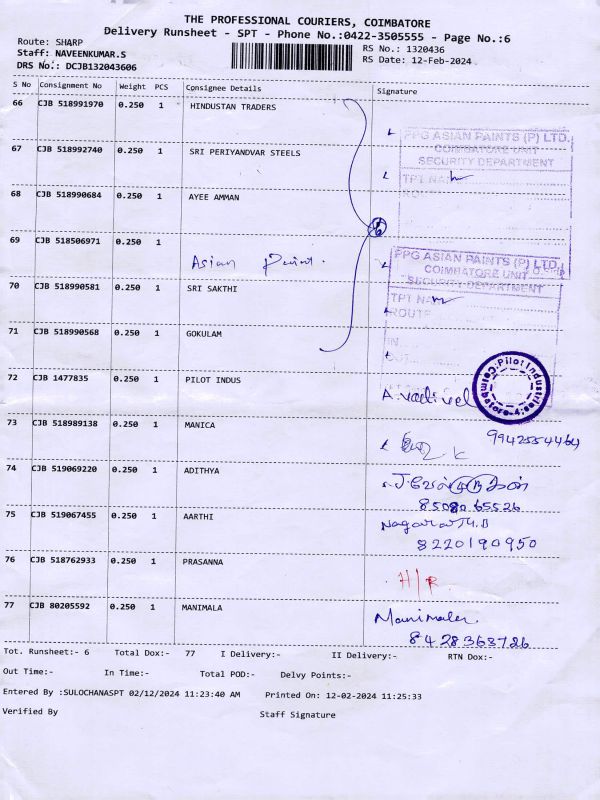 THE PROFESSIONAL COURIERS, COIMBATORE
Delivery Runsheet - SPT - Phone No.:0422-3505555 - Page No.:6
Route: SHARP
Staff: NAVEENKUMAR.S
DRS No.: DCJB132043606
RS No.: 1320436
RS Date: 12-Feb-2024
S No Consignment No Weight PCS Consignee Details Signature
66 CJB 518991970 0.250 1 HINDUSTAN TRADERS
PPG ASIAN PAINTS (P) LTD.
COIMBATORE UNIT
SECURITY DEPARTMENT
TPT NAM
67 CJB 518992740 0.250 1 SRI PERIYANDVAR STEELS
68 CJB 518990684 0.250 1 AYEE AMMAN
69 CJB 518506971 0.250 1 Asian Paint.
PPG ASIAN PAINTS (P) LTD.
COIMBATORE UNIT
SECURITY DEPARTMENT
TPT NAM
ROUTE
IN
OUT
70 CJB 518990581 0.250 1 SRI SAKTHI
71 CJB 518990568 0.250 1 GOKULAM
72 CJB 1477835 0.250 1 PILOT INDUS A.vadivel
Pilot Industries Coimbatore-4
73 CJB 518989138 0.250 1 MANICA 9942554464
74 CJB 519069220 0.250 1 ADITHYA
85080 65526
75 CJB 519067455 0.250 1 AARTHI Nagaraj M.B
8220190950
76 CJB 518762933 0.250 1 PRASANNA H/R
77 CJB 80205592 0.250 1 MANIMALA Manimala
8428368726
Tot. Runsheet:- 6 Total Dox:- 77 I Delivery:- II Delivery:- RTN Dox:-
Out Time:- In Time:- Total POD:- Delvy Points:-
Entered By :SULOCHANASPT 02/12/2024 11:23:40 AM Printed On: 12-02-2024 11:25:33
Verified By Staff Signature